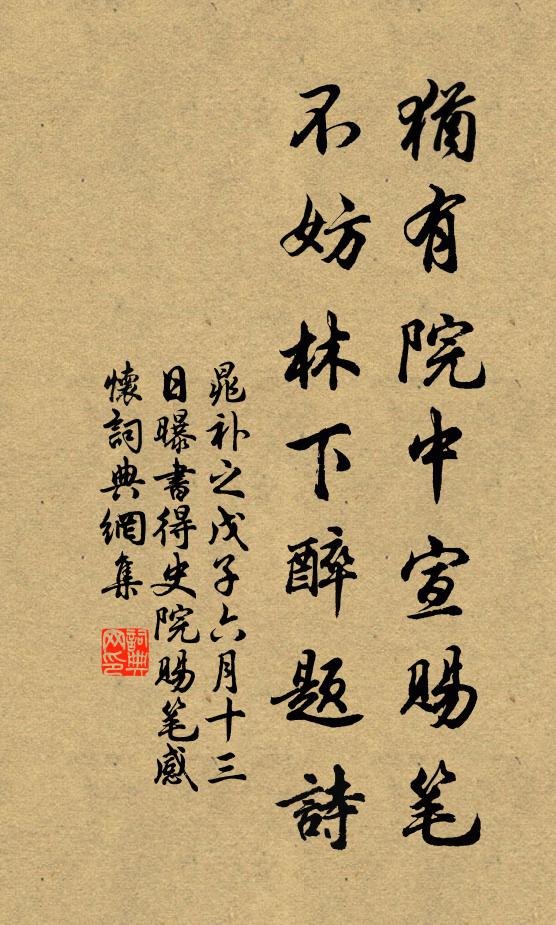 猶有院中宣賜笔
不妨林下醉題詩
晁补之戊子六月十三
日曝書得史院賜笔感
懷詞典網集
詞典网印